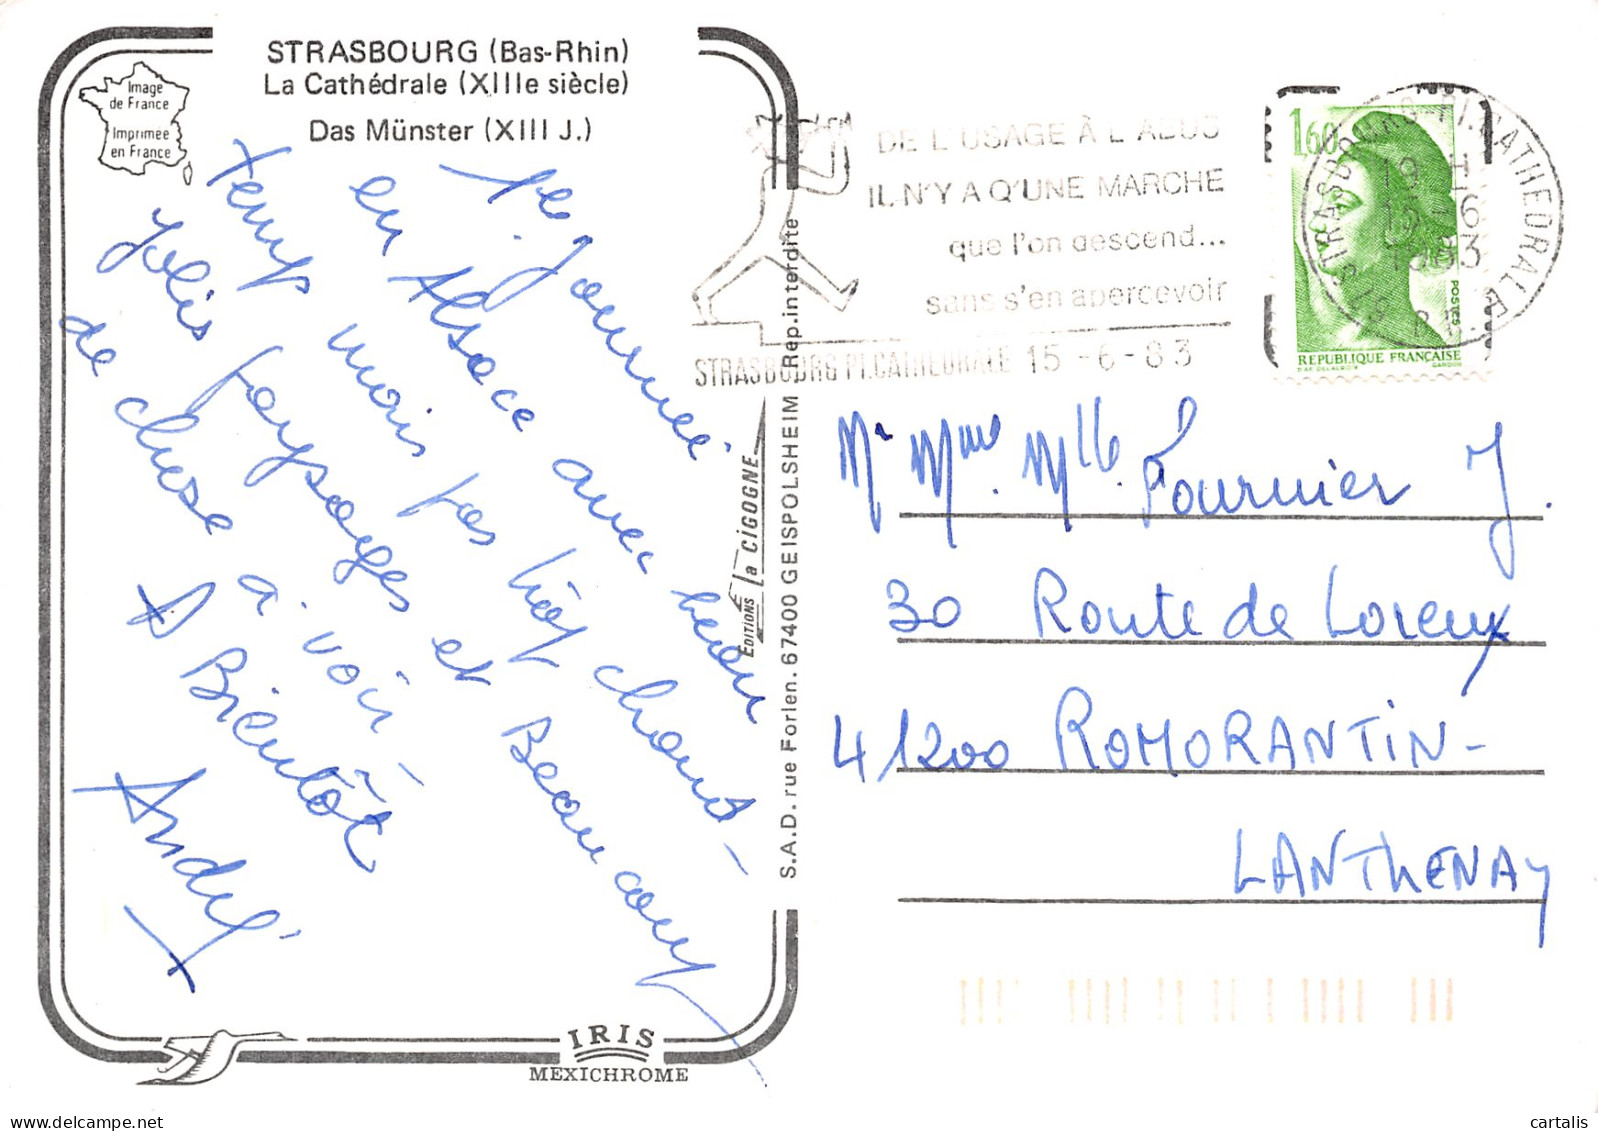 STRASBOURG (Bas-Rhin)
La Cathédrale (XIIIe siècle)
Das Münster (XIII J.)
Image
de France
Imprimée
en France
1e journeé
en Alsace avec beau
temps mais pas trop chaud -
Jolis paysages et Beaucoup
de chose a voir -
A Bientôt
André
IRIS
MEXICHROME
S.A.D. rue Forlen. 67400 GEISPOLSHEIM Rep. interdite
EDITIONS La CIGOGNE
DE L'USAGE À L'ABUS
IL N'Y A Q'UNE MARCHE
que l'on descend...
sans s'en apercevoir
STRASBOURG PL.CATHEDRALE 15 -6 -83
1,60
POSTES
REPUBLIQUE FRANÇAISE
D'AP. DELACROIX GANDON
STRASBOURG PL.CATHEDRALE
19 H
15 -6
1983
67 B.RH.
Mr Mme. Mlle. Fournier J.
30 Route de Loreux
41200 ROMORANTIN -
LANTHENAY
cartalis